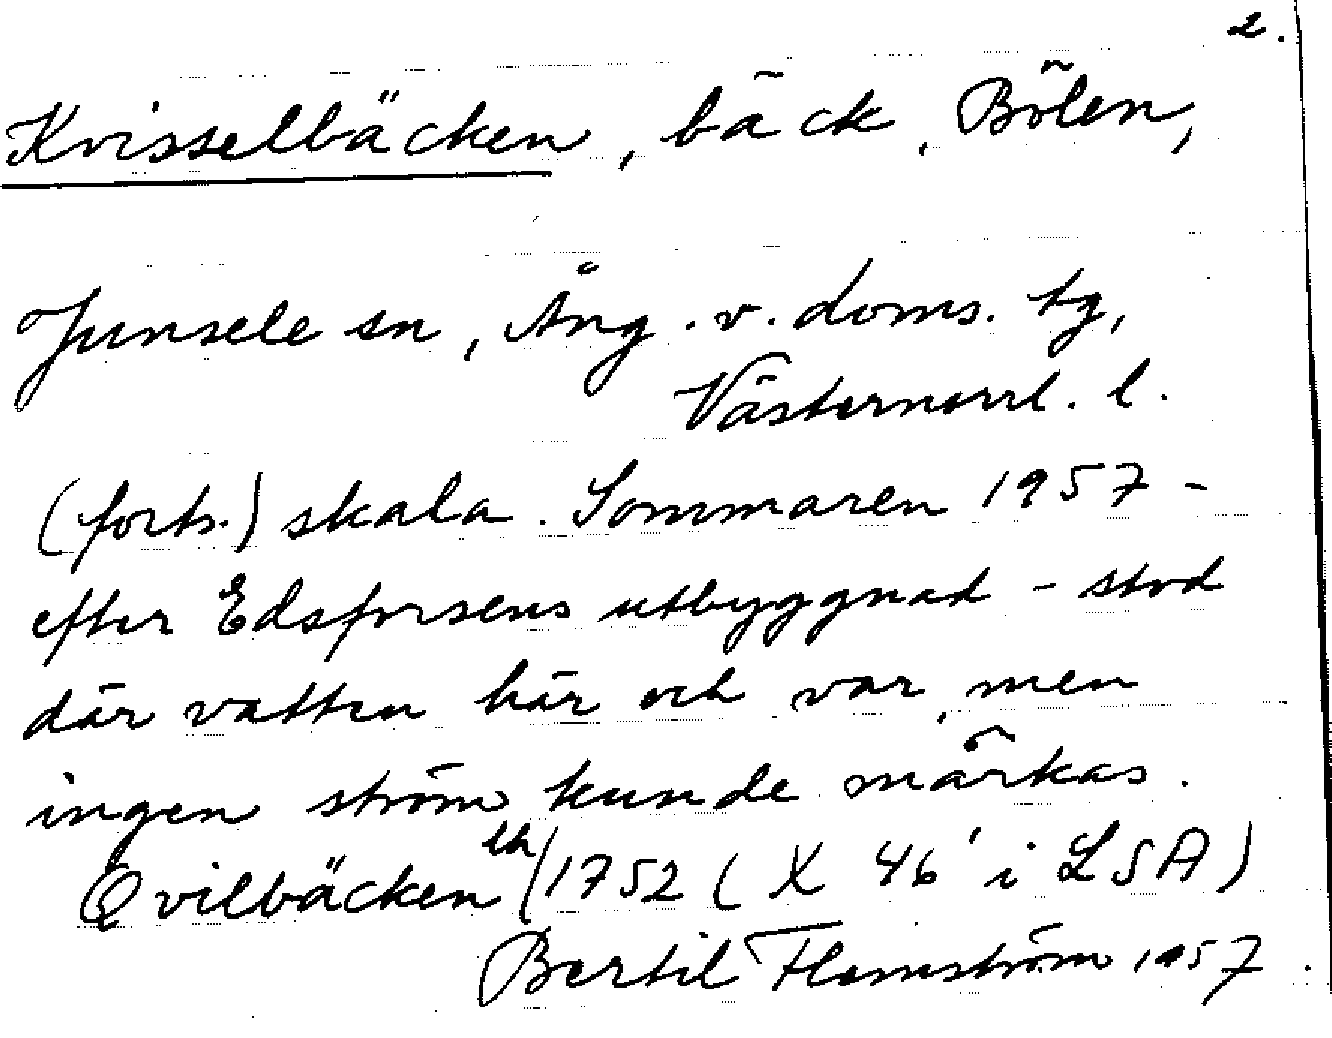 2.
Kvisselbäcken, bäck, Bölen,
Junsele sn, Ång. v. doms. tg,
Västernorrl. l.
(forts.) skala. Sommaren 1957 -
efter Edsforsens utbyggnad - stod
där vatten här och var, men
ingen ström kunde märkas.
Qvilbäcken lh/1752 (X 46' i LSA)
Bertil Flemström 1957.